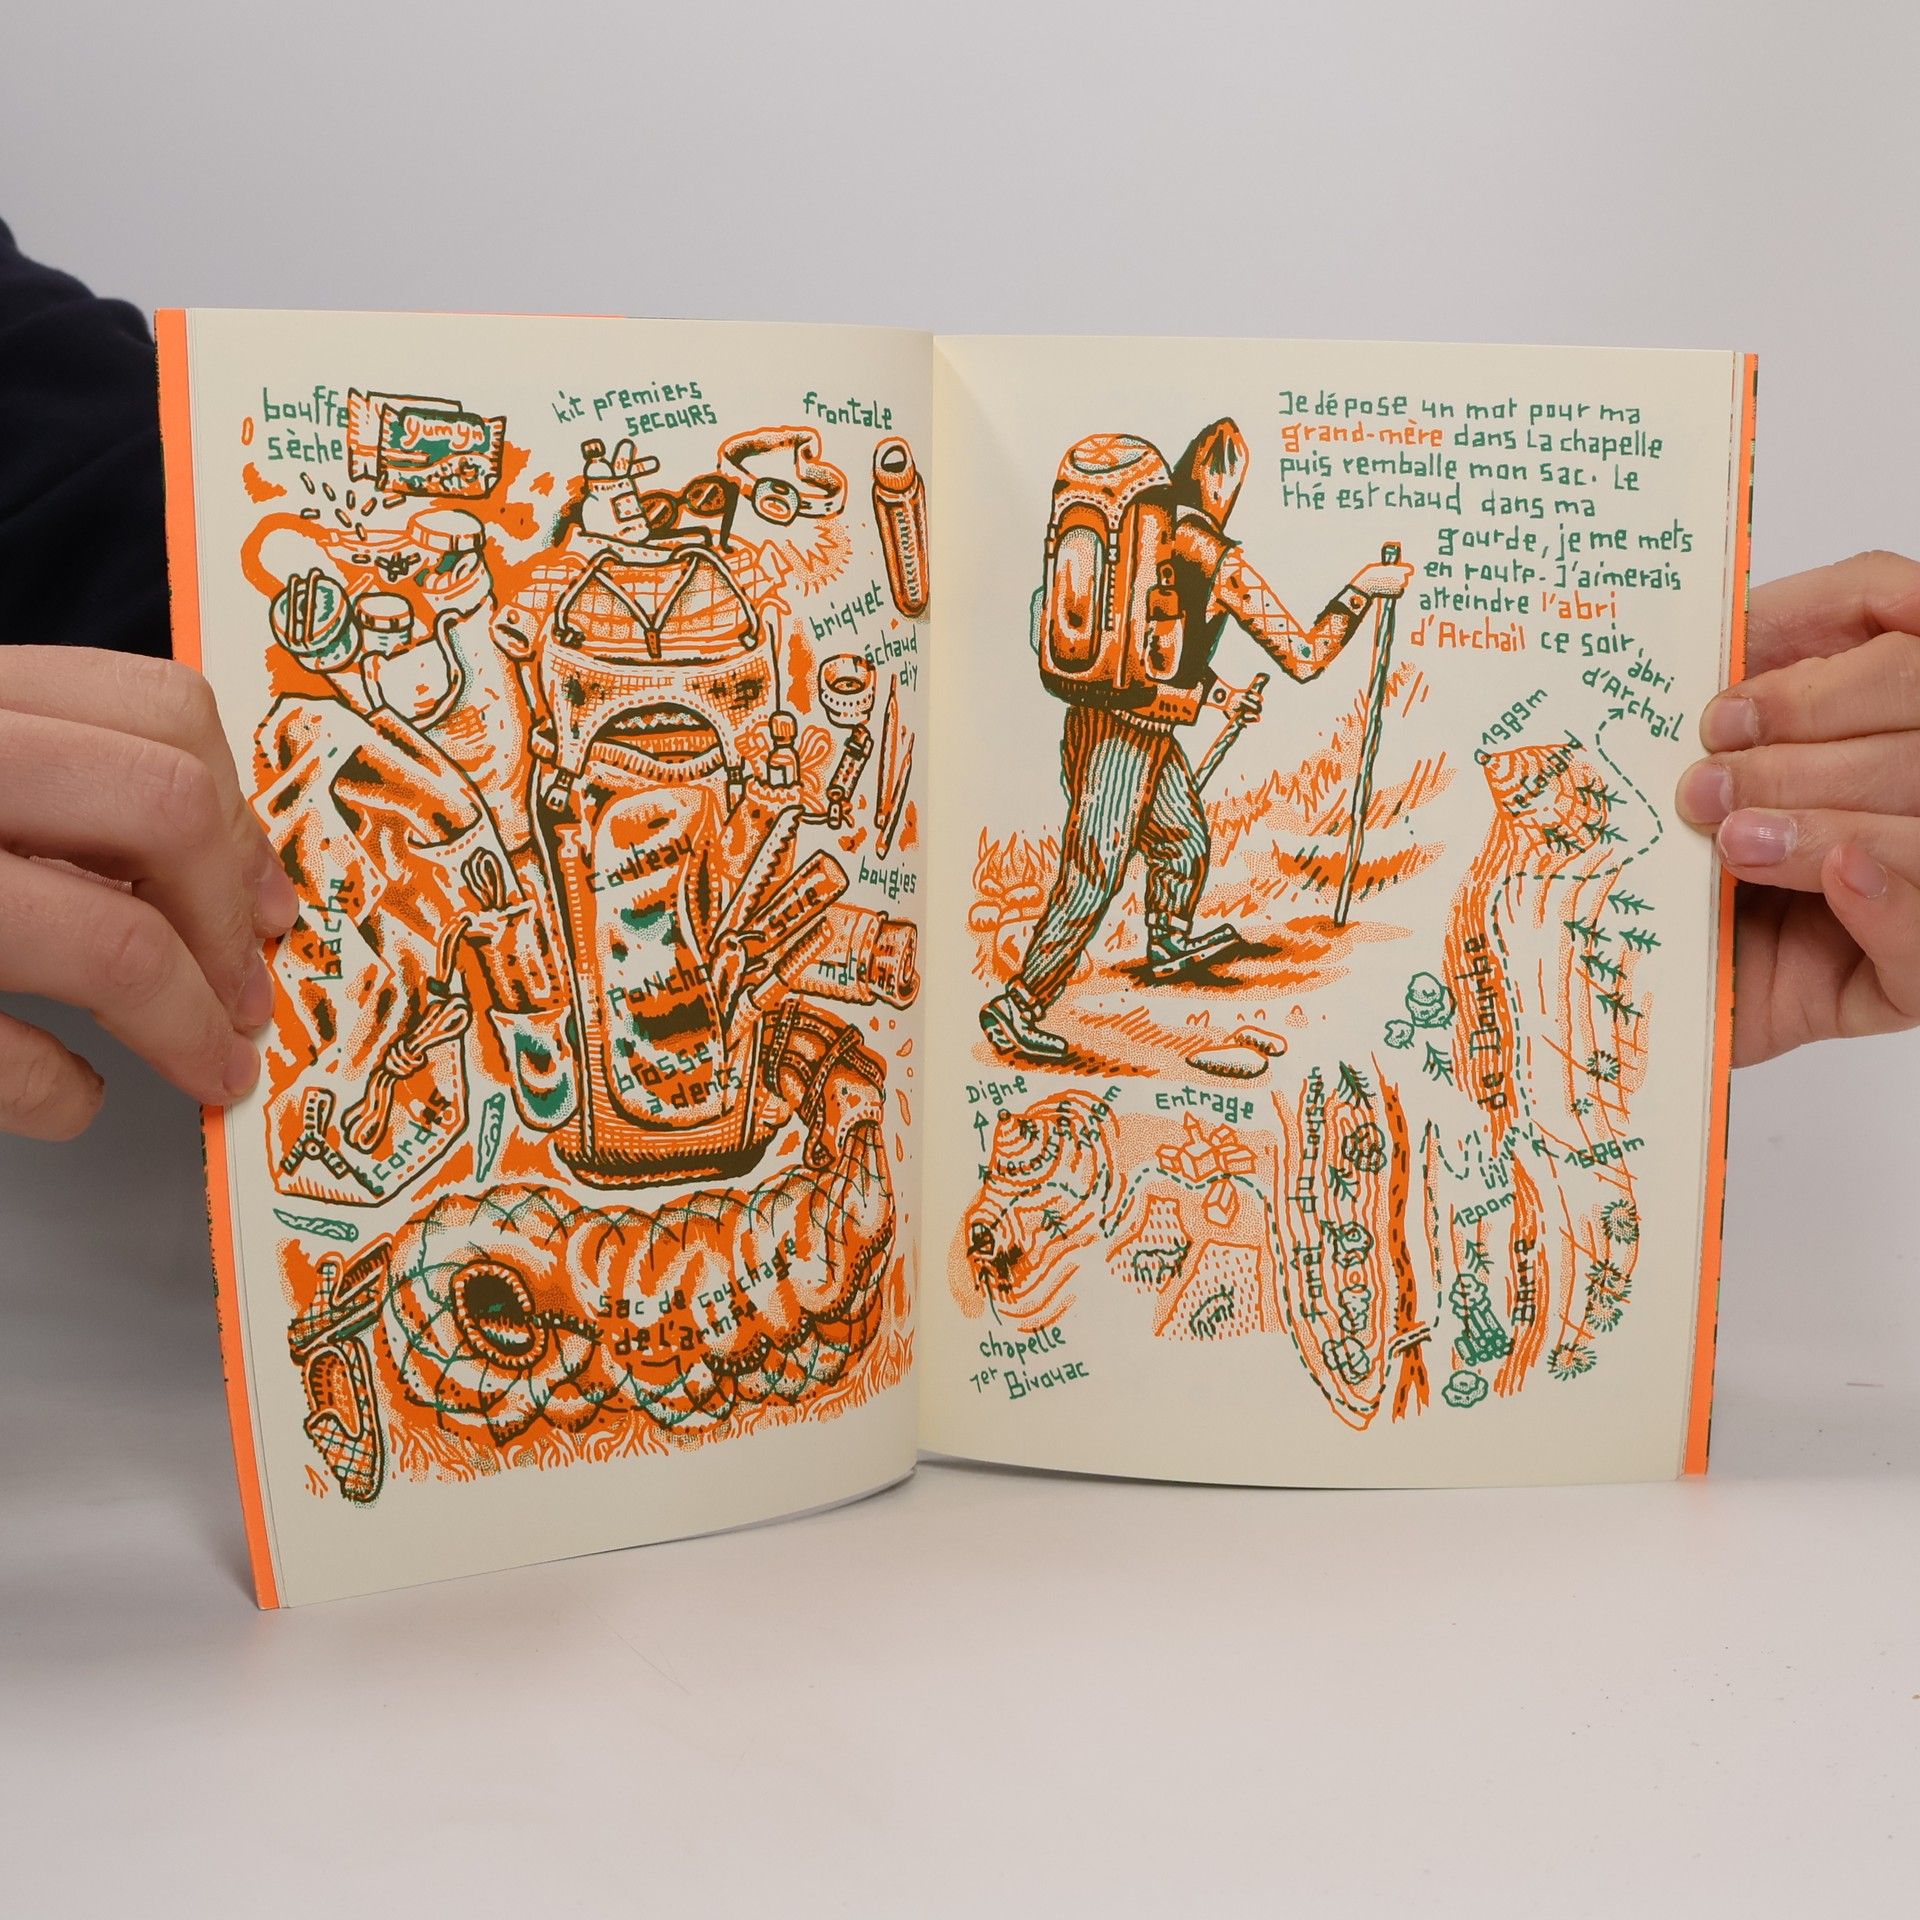 bouffe
sèche
yumyu
kit premiers
secours
frontale
briquet
réchaud
diy
couteau
bougies
scie
matelas
bâche
poncho
brosse
à dents
cordes
sac de couchage
de l'armée
Je dépose un mot pour ma
grand-mère dans La chapelle
puis remballe mon sac. Le
thé est chaud dans ma
gourde, je me mets
en route. J'aimerais
atteindre l'abri
d'Archail ce soir,
abri
d'Archail
1989m
Barre
de Dourbe
Digne
Entrage
Forêt du Cousson
1200m
Barre
chapelle
1er Bivouac